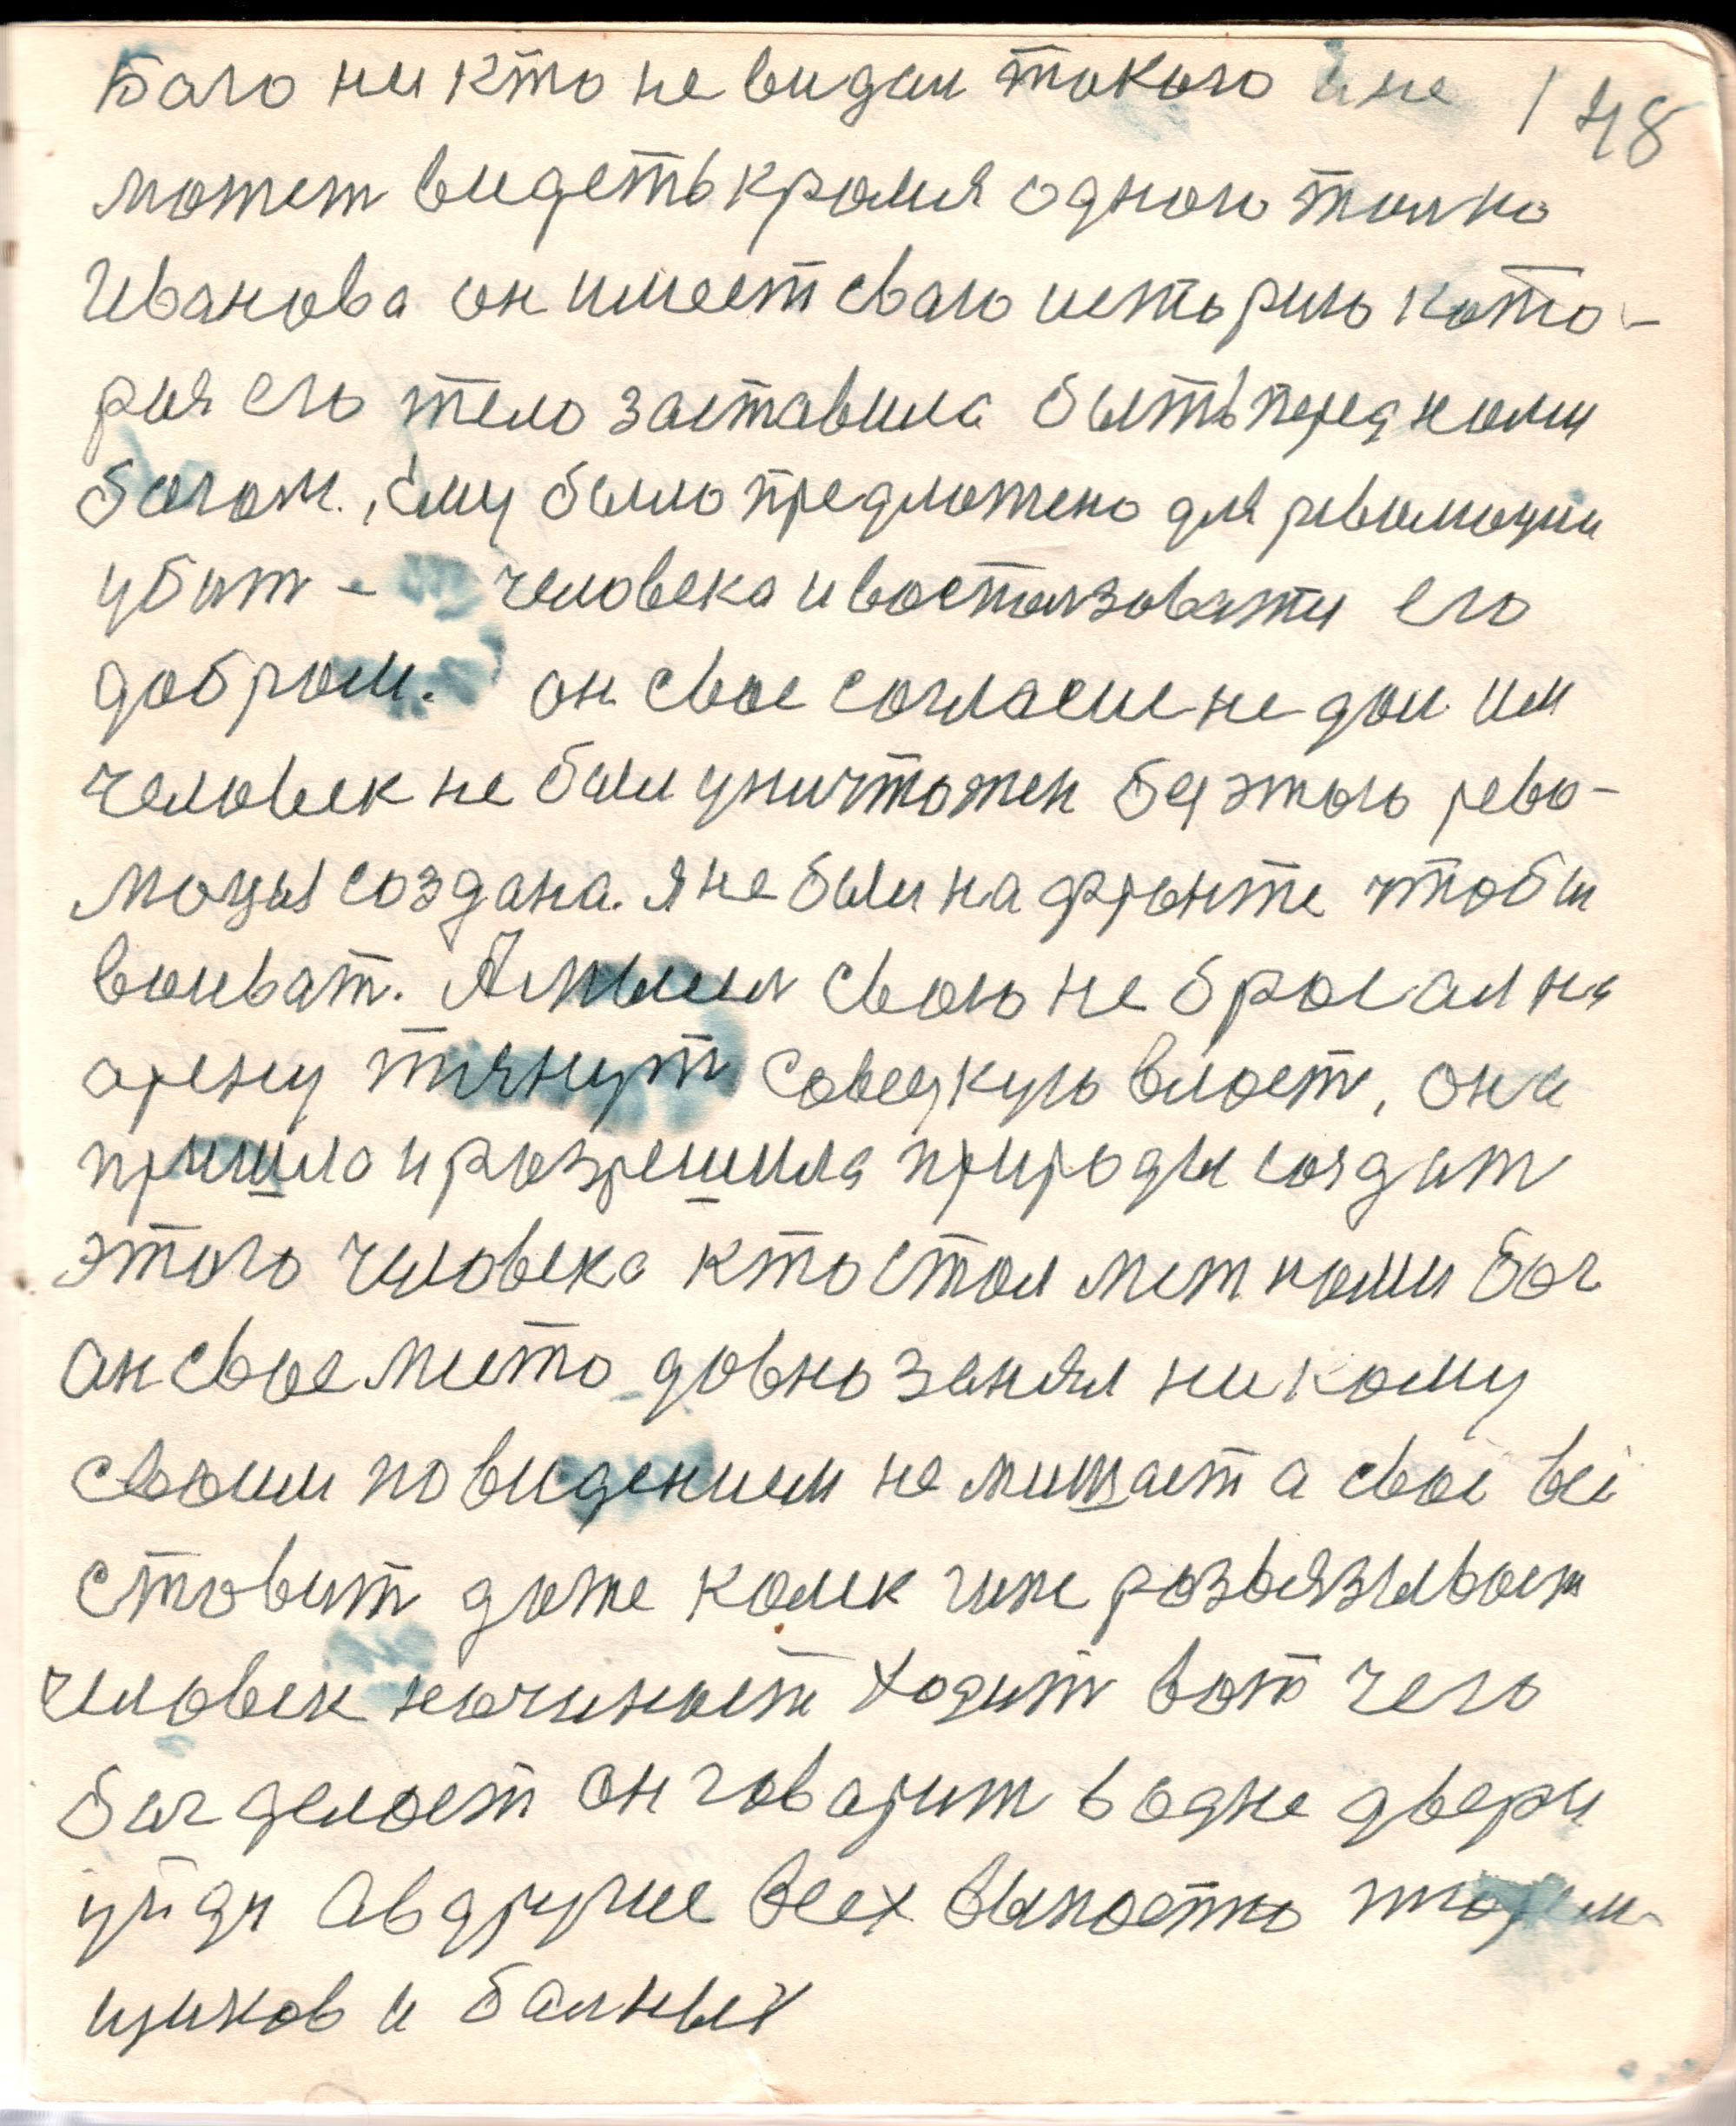 Бого ни кто не видал такого и не 148
может видеть кромя одного толко
Иванова он имеет сваю историю кото-
рая его тело заставила быть перед нами
богом. ему было предложено для революции
убит - человека и воспользовати его
добром. он свое согласие не дал им
человек не был уничтожен без этого рево-
люцыя создана. я не был на фронте чтобы
воиват. А мысли свою не бросал на
арену тянут совецкую власт, она
пришла и розрешила природы создат
этого человека кто стал меж нами бог
он свое место давно занял ни кому
своим повидением не мишает а свое все
ставит даже комек гипе розвязывает
чиловек начинает ходит вот чего
бог делает он говарит в одне двери
уйди а в другие всех выпостю тюрем-
щиков и балных